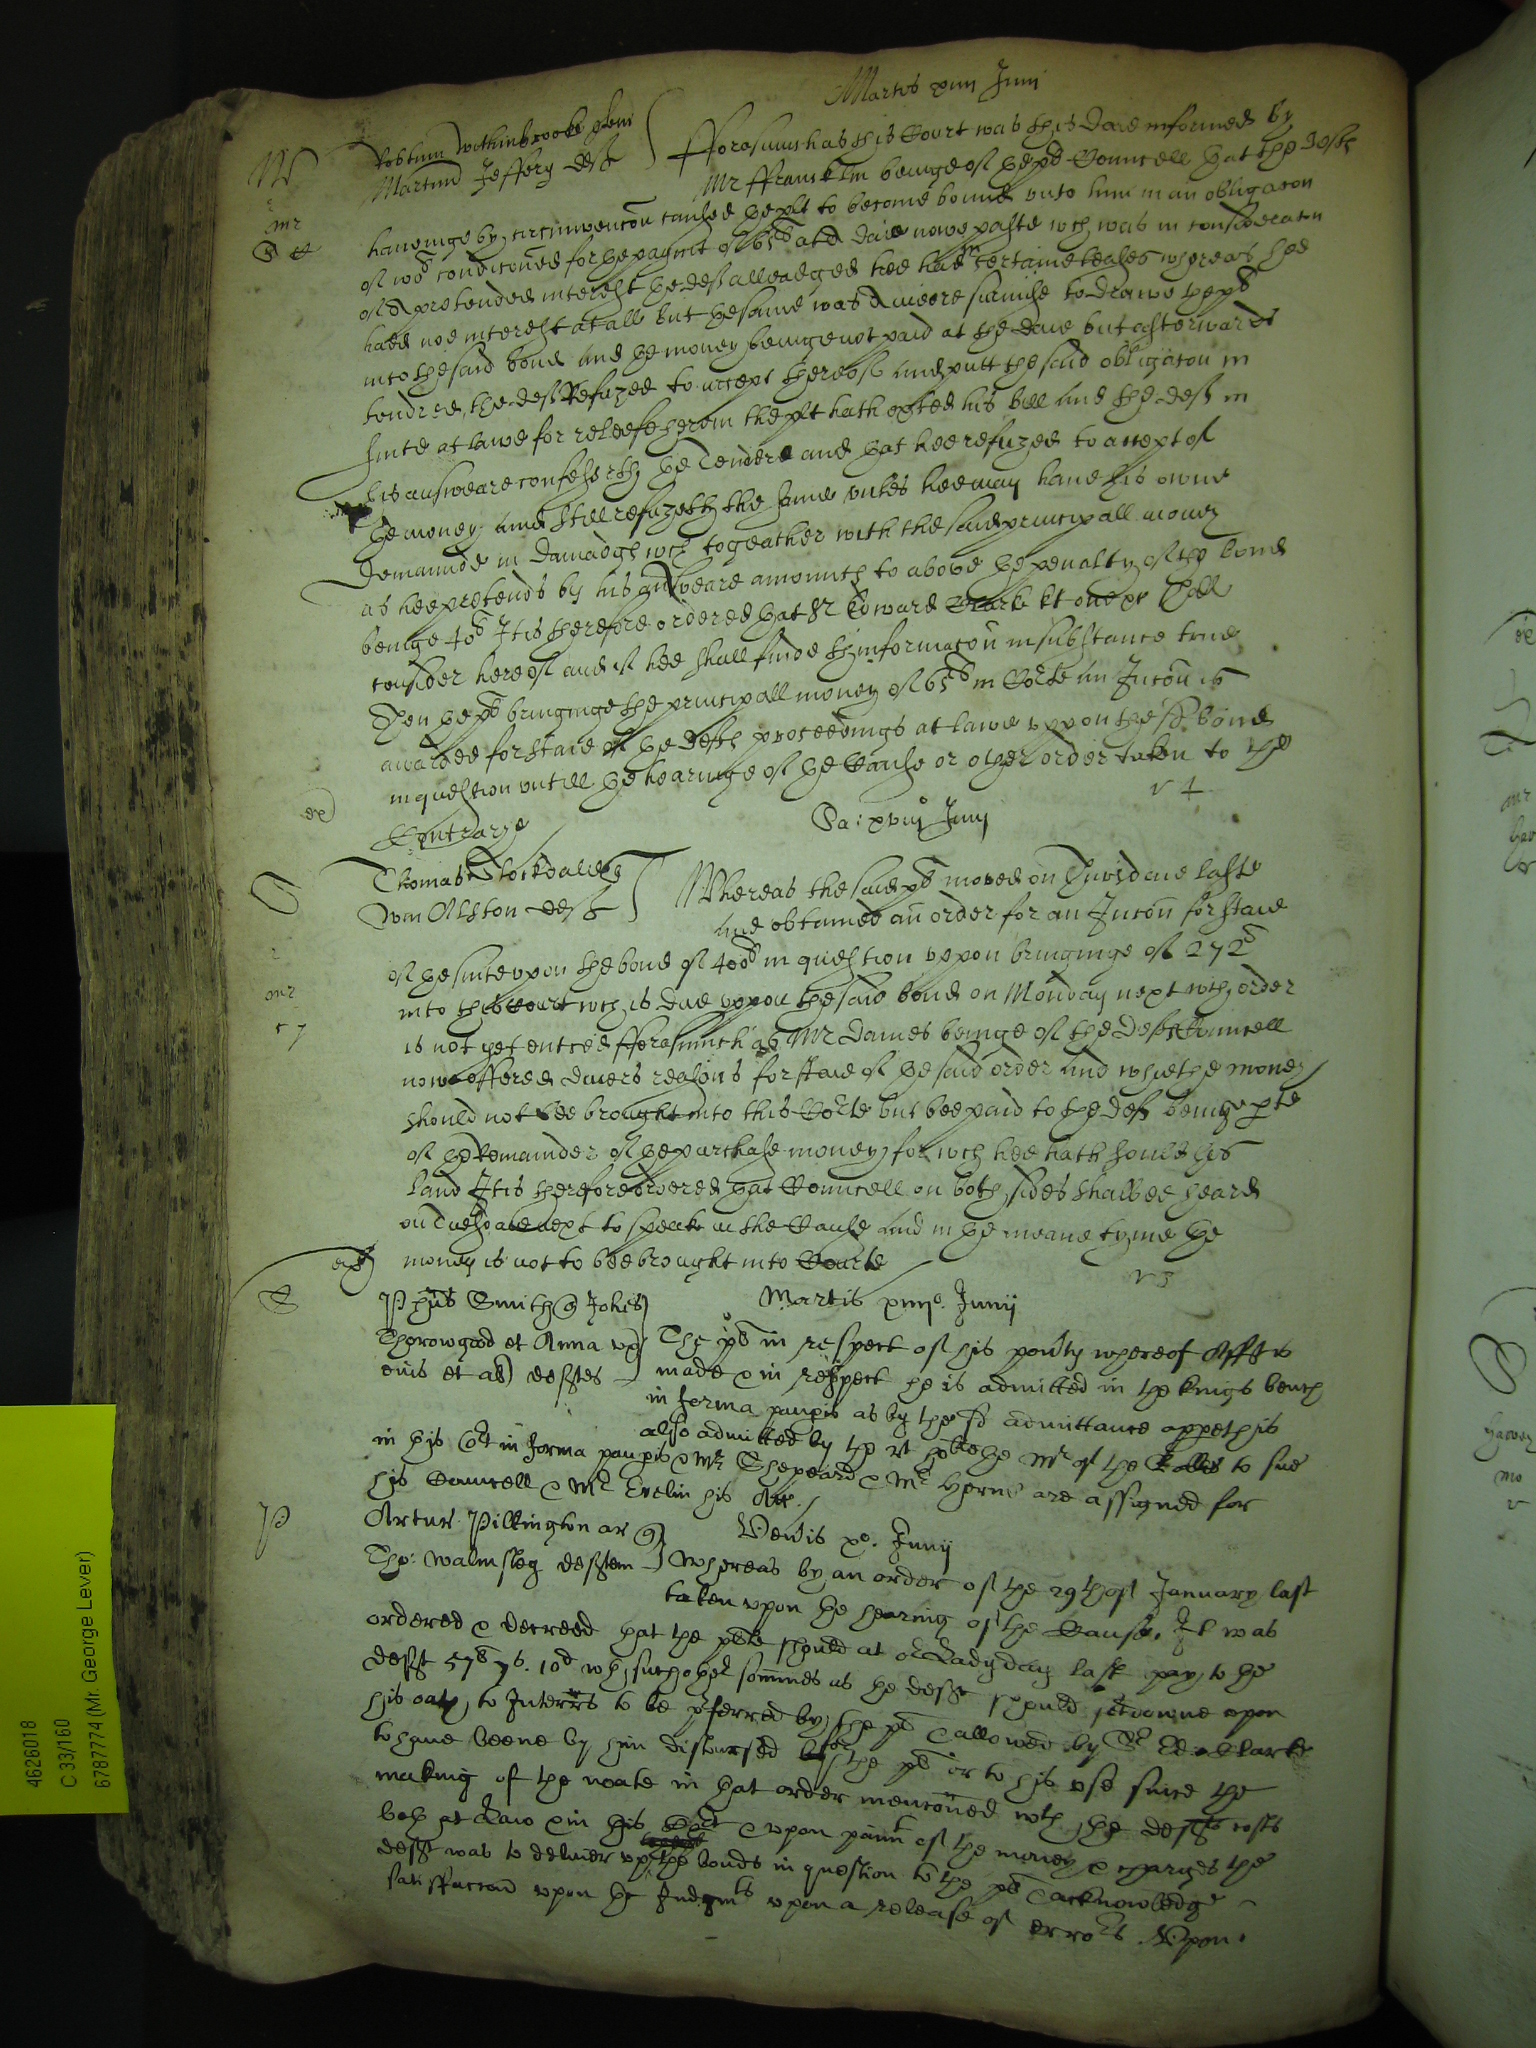 Martis xiiii Junii
W
Robtum Withinbrooke quer
Martinu Jeffery deft
Fforasmuch as this Court was this daie informed by
Mr Ffrancklin beinge of the plts Councell that the deft
haveinge by circumvencon caused the plt to become bound unto him in an obligacon
of condiconed for the paymt of 65li at a daie nowe paste wch was in consideracon
of a pretended interest the deft alleadged hee had in certaine leases whereas hee
hadd noe interest at all but the same was a meere surmise to drawe the plt
into the said bond and the money beinge not paid at the daie but afterwards
tendred, the deft refuzed to accept thereof and putt the said obligacon in
suite at lawe for releefe herein the plt hath exhted his bill and the deft in
his answeare confesseth the tender and that hee refuzed to accept of
the money and still refuzeth the same unles hee may have his owne
demaunde in damadge wch togeather with the said principall money
as hee pretends by his answeare amounts to above the penalty of the bond
beinge It is therefore ordered that Sr Edward Clark kt one &c shall
consider hereof and if hee shall finde thinformacon in substance true
Then the plt bringinge the principall money of 65li in Corte an Jnicon is
awarded for staie of the defts proceedings at lawe uppon the sd bond
in question untill the hearinge of the Cause or other order taken to the
Contrarye
Sa: xviii Junii
S
Thomas Stockdall quer
Wm Alston deft
Whereas the said plt moved on Thursdaie laste
and obtained an order for an Jnicon for staie
of the suite upon the bond of 400li in question uppon bringinge of 272li
into this Court wch is due uppon the said bond on Monday next wch order
is not yet entred fforasmuch as Mr Davies beinge of the defts Councell
nowe offered divers reasons for staie of the said order and whie the money
should not bee brought into this Corte but bee paid to the deft beinge parte
of the Remainder of the purchase money for wch hee hath sould his
land It is therefore ordered that Councell on both sides shalbee heard
on Tuesdaie next to speake in the Cause and in the meane tyme the
money is not to bee brought into Courte
S
Phus Smith quer Johes
Thorowgood et Anna ux
eius et al defts
Martis xiiiio Junij
The plt in respect of his povty whereof Afft is
made & in respect he is admitted in the kings bench
in forma paupis as by the sd admittance appeth is
also admitted by the rt hoble the Mr of the Rolles to sue
in this Cort in forma paupis & Mr Shepeard & Mr Herne are assigned for
his Councell & Mr Evelin his Att.
P
Artur Pilkington ar quer
Tho: Walmsley deftem
Veneris xo. Junij
Whereas by an order of the 29th of January last
taken upon the hearing of the Cause. It was
ordered & decreed that the plte should at or Lady day last pay to the
deft 57li 7s. 10d wth such other sommes as the deft should set downe upon
his oath to Interrs to be pferred by the plt & allowed by Sr Ed: Clarke
to have beene by him disbursed for the plt or to his use since the
making of the noate in that order mencioned wth the defts costs
both at Law & in this Cort & upon paimt of the money & charges the
deft was to deliver up the bonds in question to the plt & acknowledg
satisfaccon upon the Judgmts upon a release of errors. Upon
4626018
C 33/160
6787774 (Mr. George Lever)